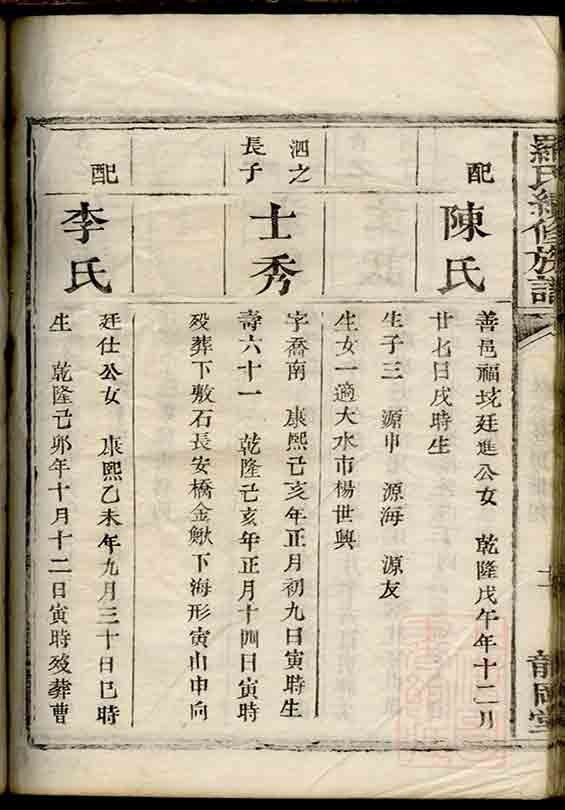 羅氏續修族譜
龍岡堂
配
陳氏
善邑福坡廷進公女　乾隆戊午年十二月
廿七日戌時生
生子三　源申　源海　源友
生女一適大水市楊世興
泗之
長子
士秀
字喬南　康熙己亥年正月初九日寅時生
壽六十一　乾隆己亥年正月十四日寅時
歿葬下敷石長安橋金鰍下海形寅山申向
配
李氏
廷仕公女　康熙乙未年九月三十日巳時
生　乾隆己卯年十月十二日寅時歿葬曹